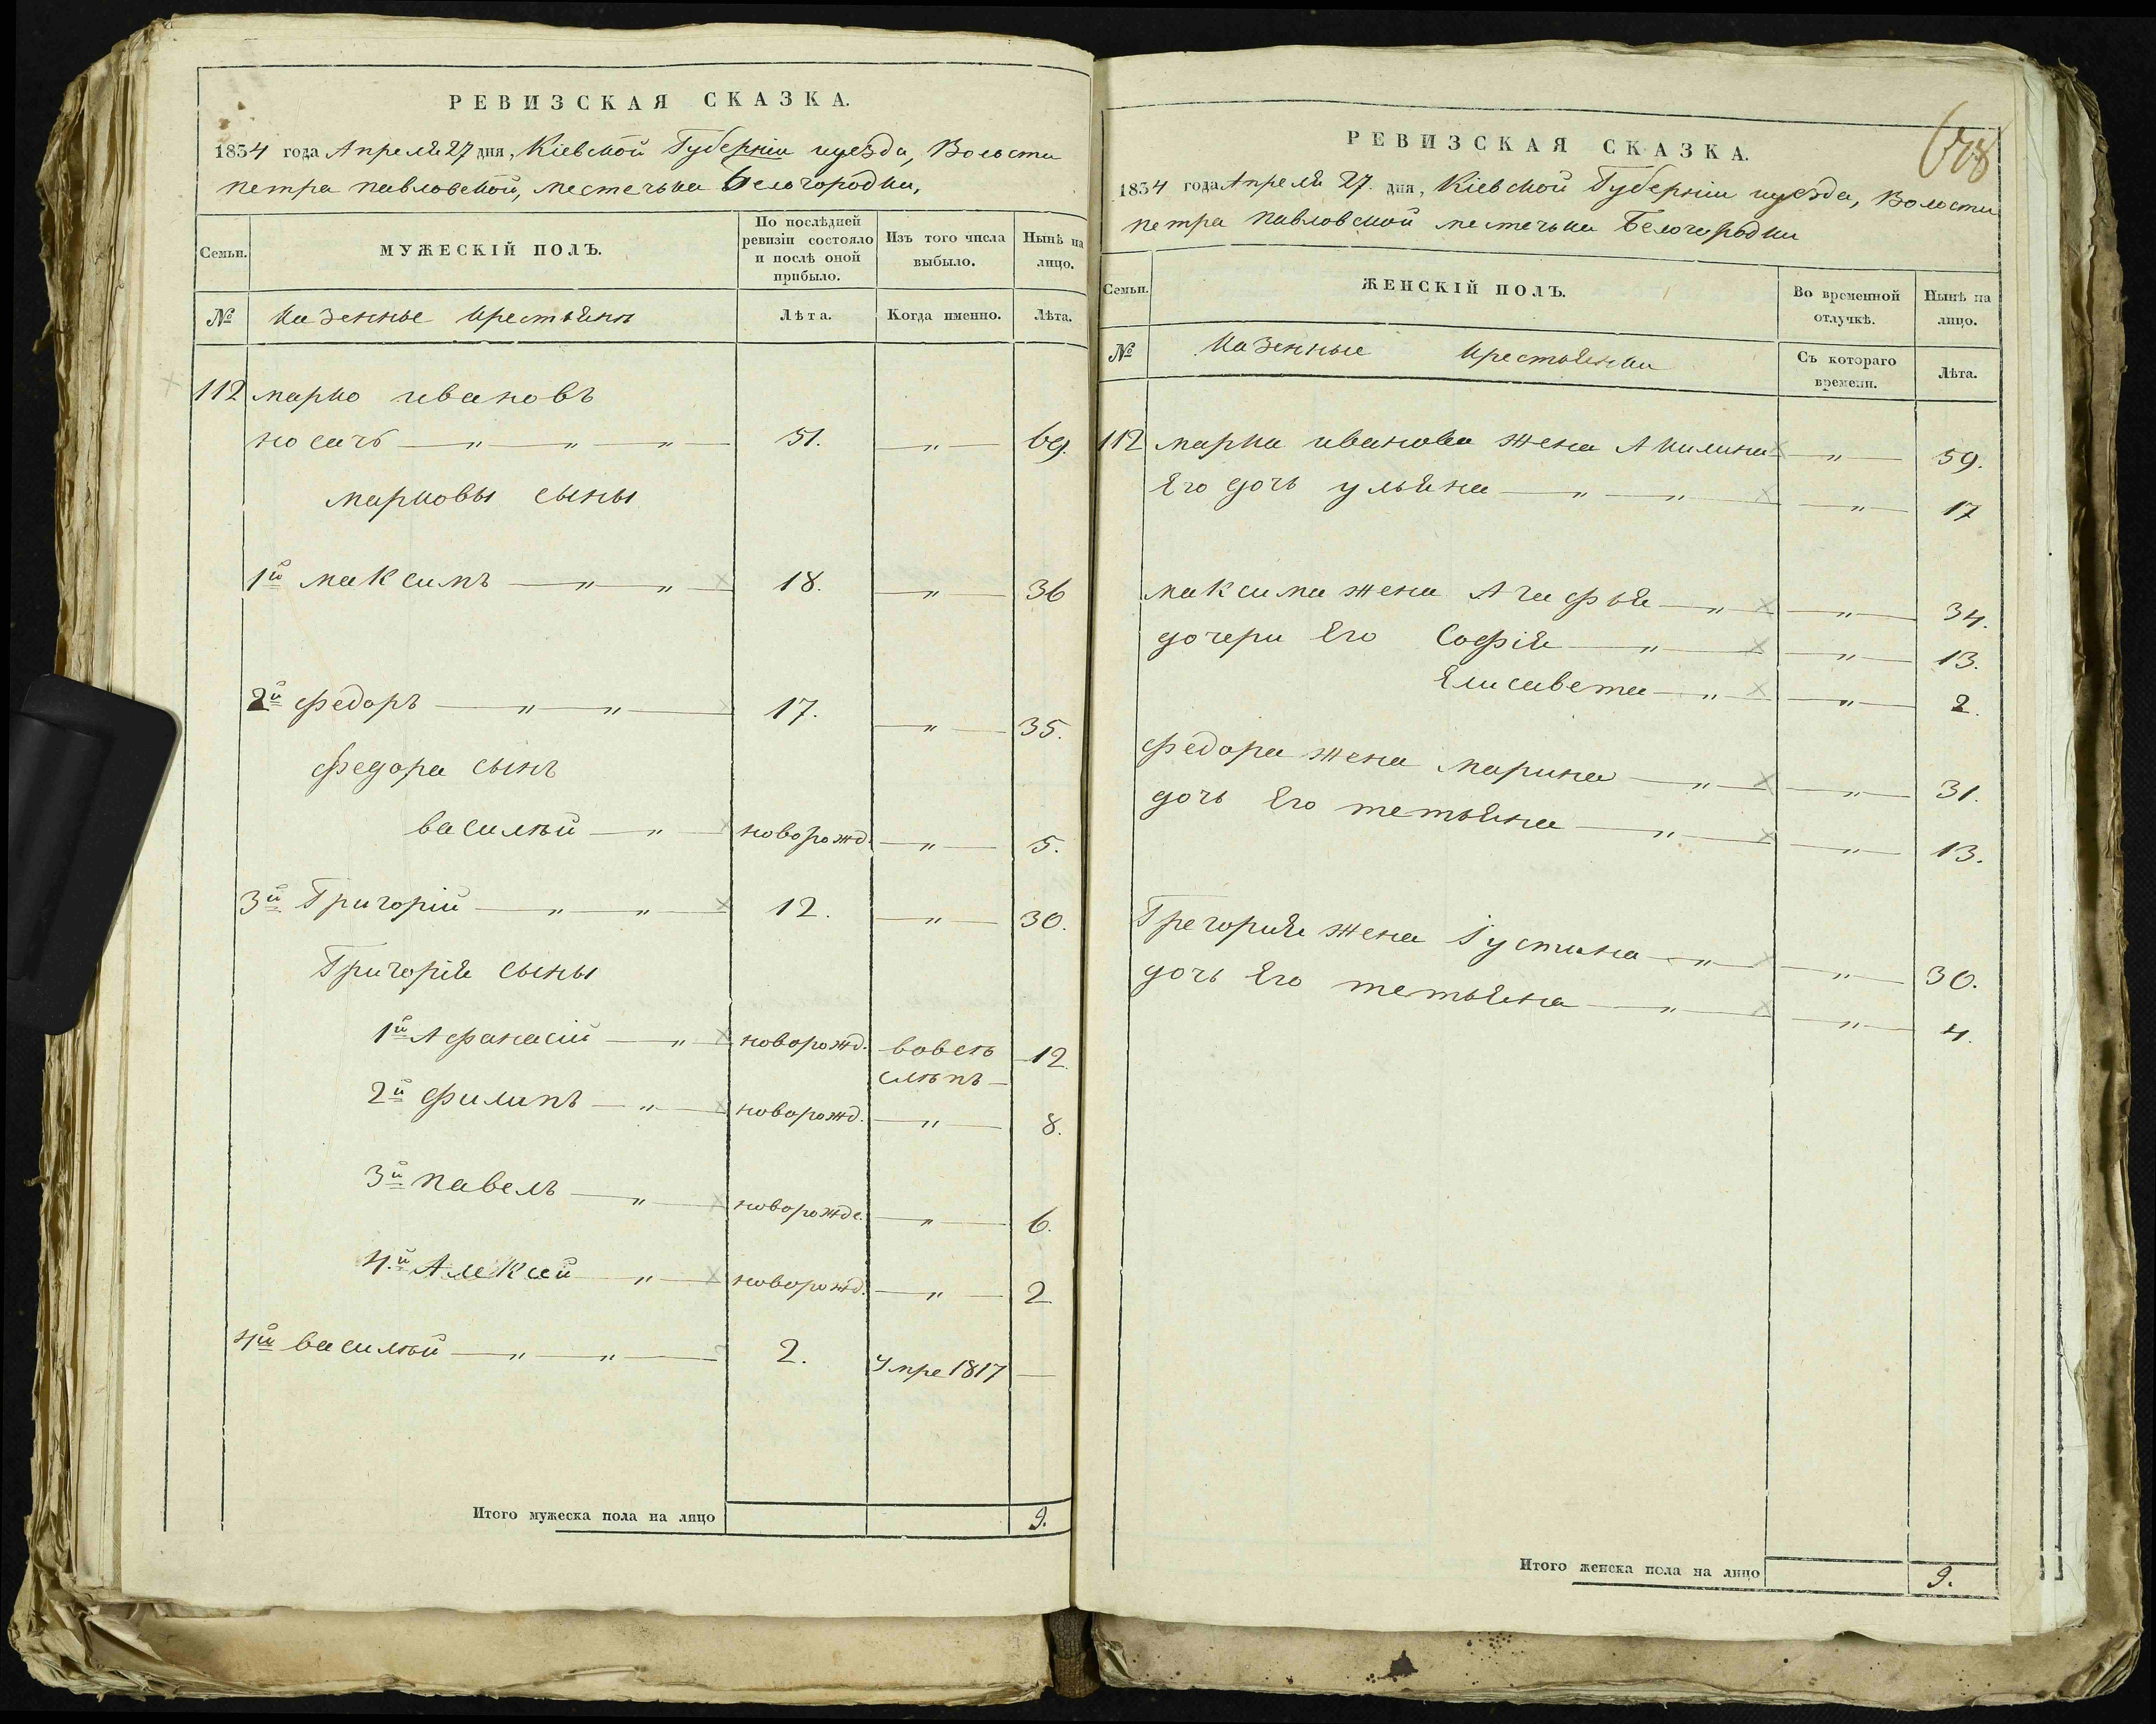 РЕВИЗСКАЯ СКАЗКА.
1834 года Апреля 27 дня, Кіевской Губерніи иуезда, Волости
петра павловской, местечька Белогородки,
Семьи.
МУЖЕСКІЙ ПОЛЪ.
По послѣдней ревизіи состояло и послѣ оной прибыло.
Изъ того числа выбыло.
Нынѣ на лицо.
№
Казенные крестьяне
Лѣта.
Когда именно.
Лѣта.
112 марко ивановъ
носачъ — " — " — " — 51. — " — 69.
марковы сыны
1й максимъ — " — " — 18. — " — 36
2й федоръ — " — " — 17. — " — 35.
федора сынъ
василѣй — " — новорожд. — " — 5.
3й Григорій — " — " — 12. — " — 30.
Григорія сыны
1й Афанасій — " — новорожд. вовсѣ 12.
слѣпъ —
2й филипъ — " — новорожд. — " — 8.
3й павелъ — " — новорожде. — " — 6.
4й Алексей — " — новорожд. — " — 2
4й василѣй — " — " — 2. Умре 1817 —
Итого мужеска пола на лицо 9.
РЕВИЗСКАЯ СКАЗКА.
1834 года Апреля 27. дня, Кіевской Губерніи иуезда, Волости
петра павловской местечьки Белогородки
Семьи.
ЖЕНСКІЙ ПОЛЪ.
Во временной отлучкѣ.
Нынѣ на лицо.
№
Казенные крестьянки
Съ котораго времени.
Лѣта.
112 марка иванова жена Акилина — " — 59.
Его дочь ульяна — " — " — " — 17
максима жена Агафья — " — " — 34.
дочери Его Софія — " — " — 13.
Елисавета — " — " — 2.
федора жена марина — " — " — 31.
дочь Его тетьяна — " — " — 13.
Грегория жена Іустина — " — " — 30.
дочь Его тетьяна — " — " — 4.
Итого женска пола на лицо 9.